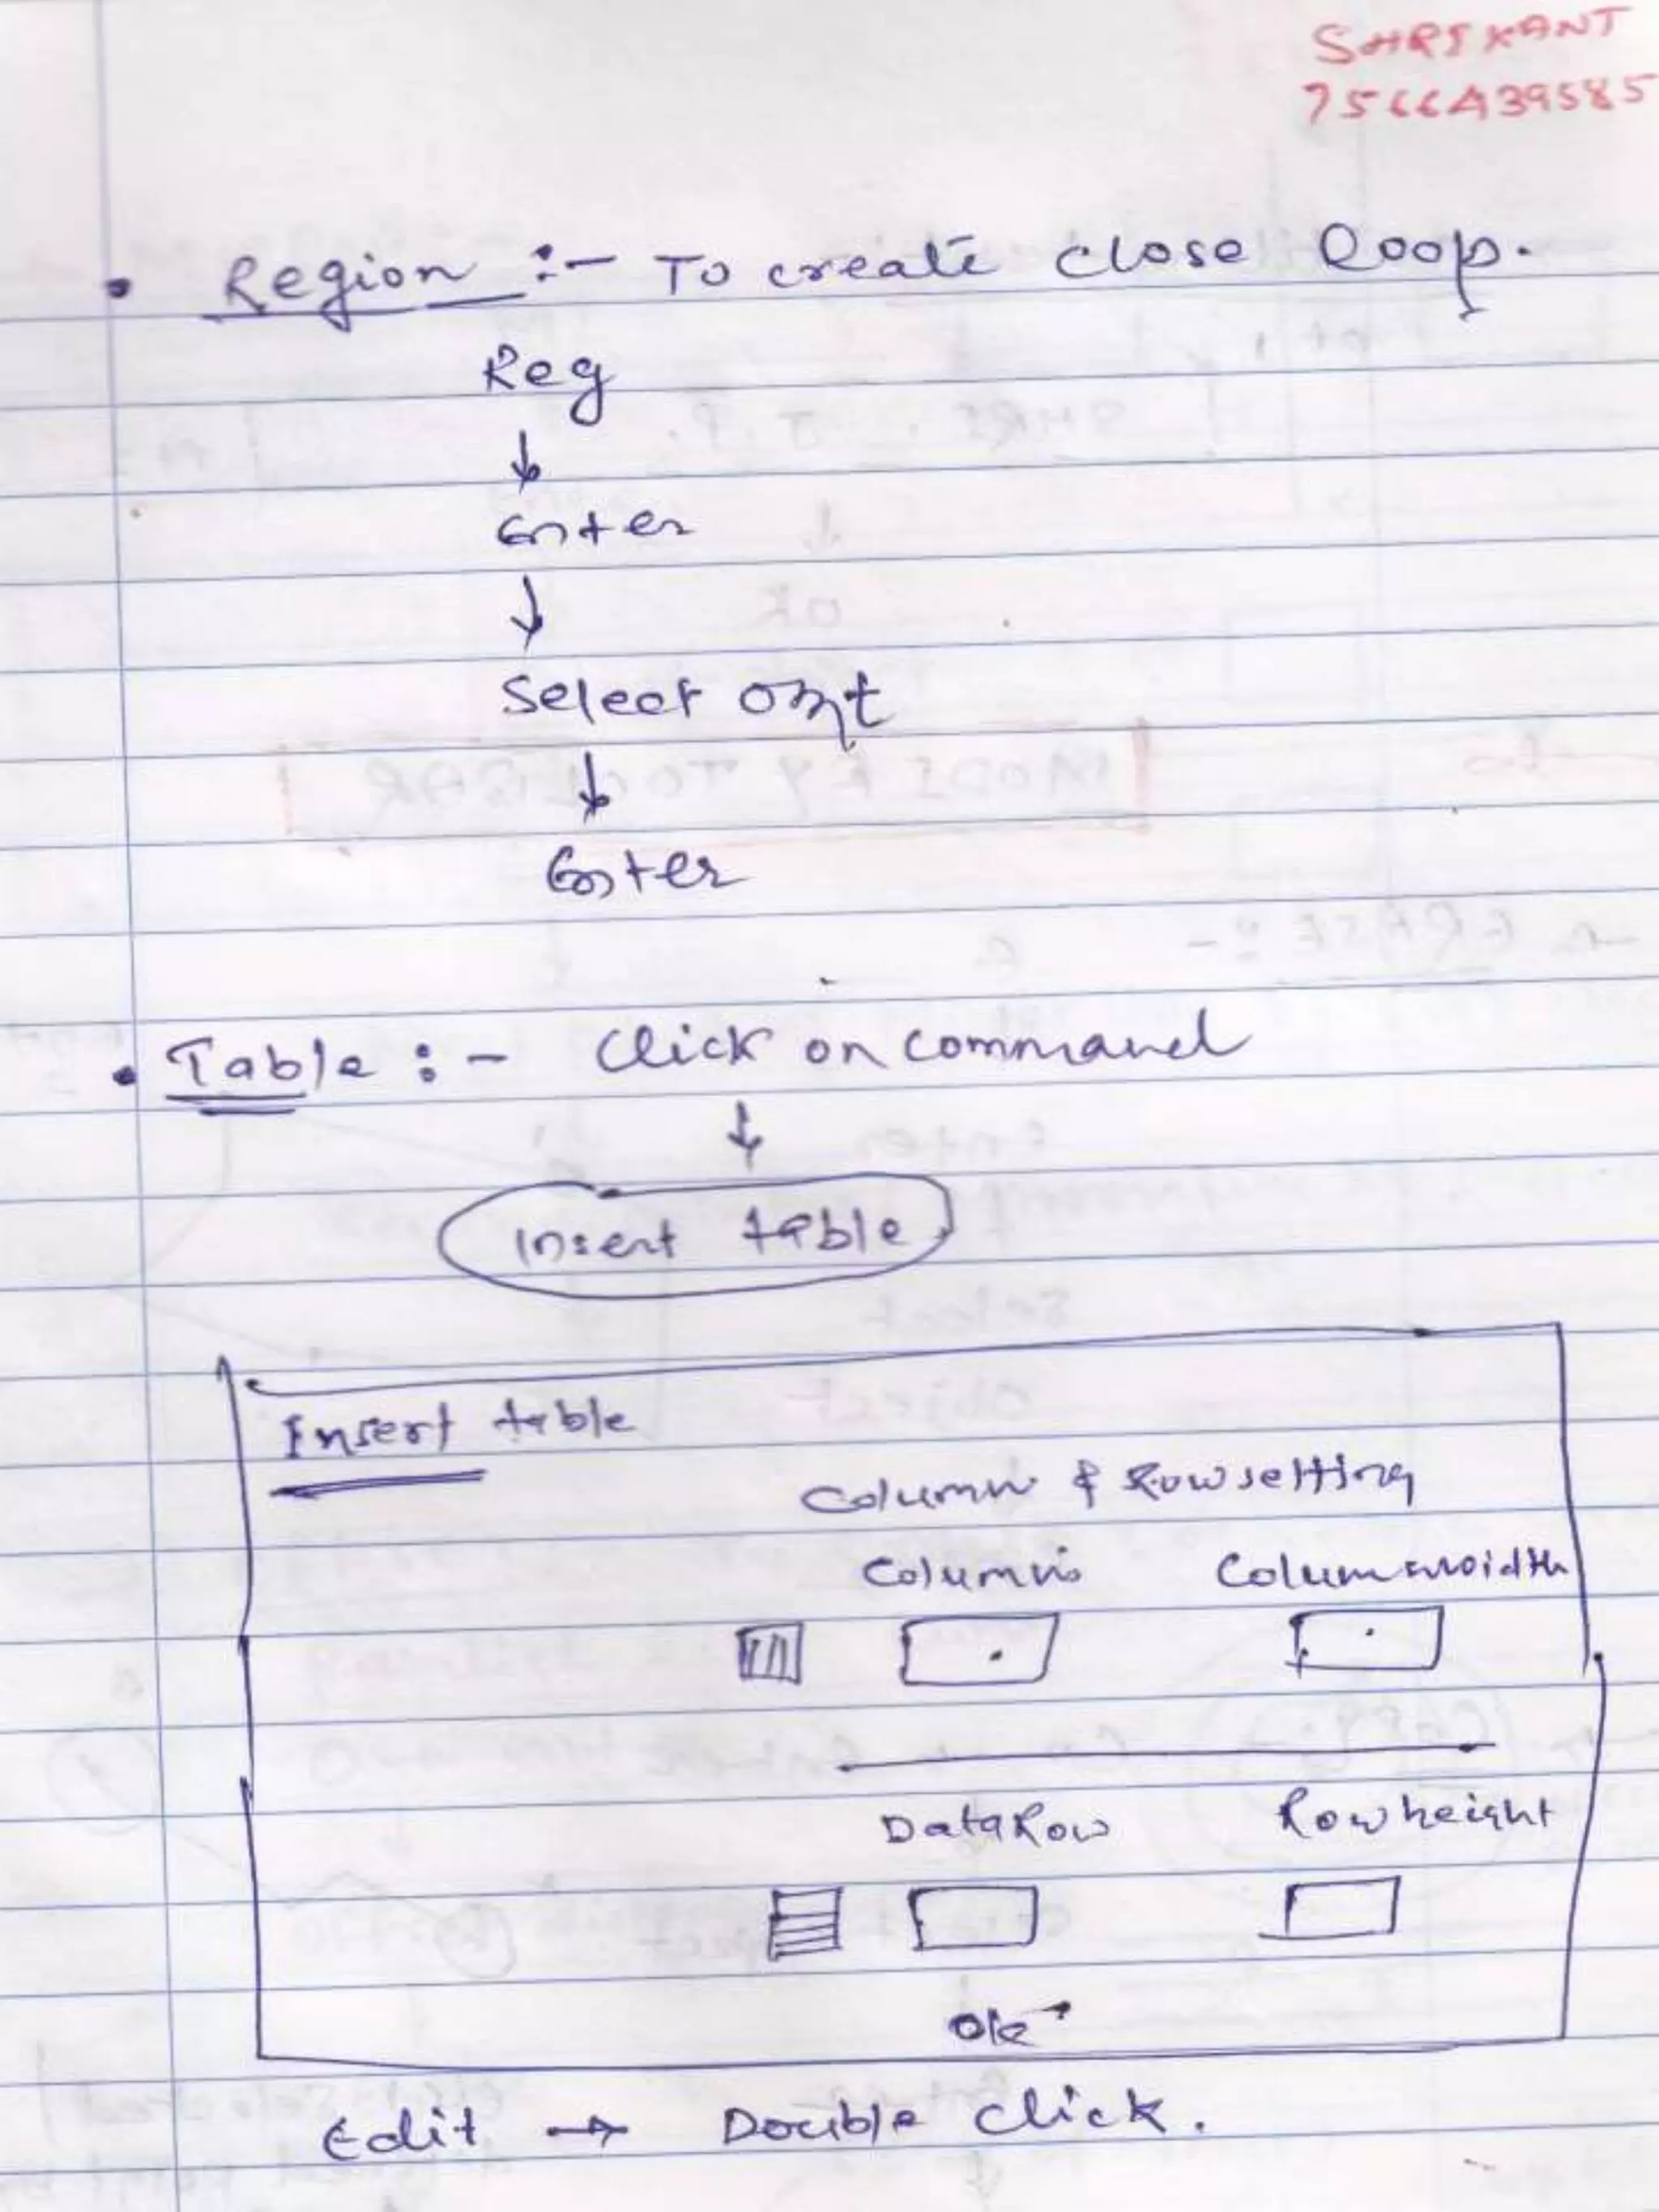 SHRIKANT
7566439585
• Region :- To create close loop.
Reg
↓
Enter
↓
Select
↓
Enter
• Table :- Click on command
↓
Insert table
Insert table
Column & Row setting
Columns Column width
Data Row Row height
Ok
Edit → Double click.